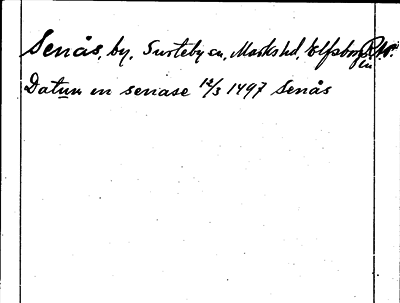 Senås, by, Surteby sn, Marks hd, Elfsborgs
Datum en senase 12/3 1497 Senås